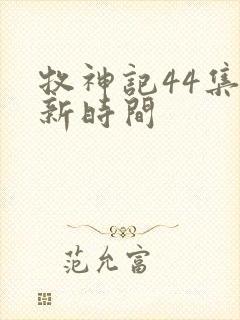 牧神記44集
新時間
范允富